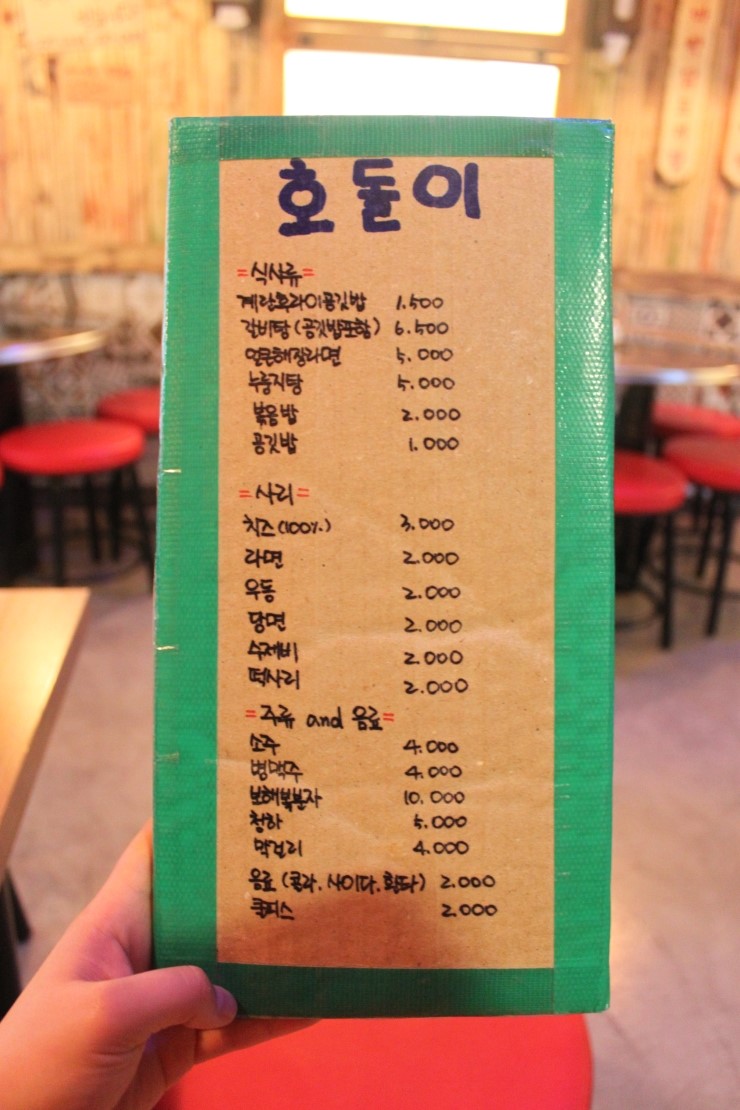 호돌이
=식사류=
계란후라이공깃밥 1.500
갈비탕(공깃밥포함) 6.500
얼큰해장라면 5.000
누룽지탕 5.000
볶음밥 2.000
공깃밥 1.000
=사리=
치즈(100%) 3.000
라면 2.000
우동 2.000
당면 2.000
수제비 2.000
떡사리 2.000
=주류 and 음료=
소주 4.000
병맥주 4.000
보해복분자 10.000
청하 5.000
막걸리 4.000
음료(콜라.사이다.환타) 2.000
쿨피스 2.000